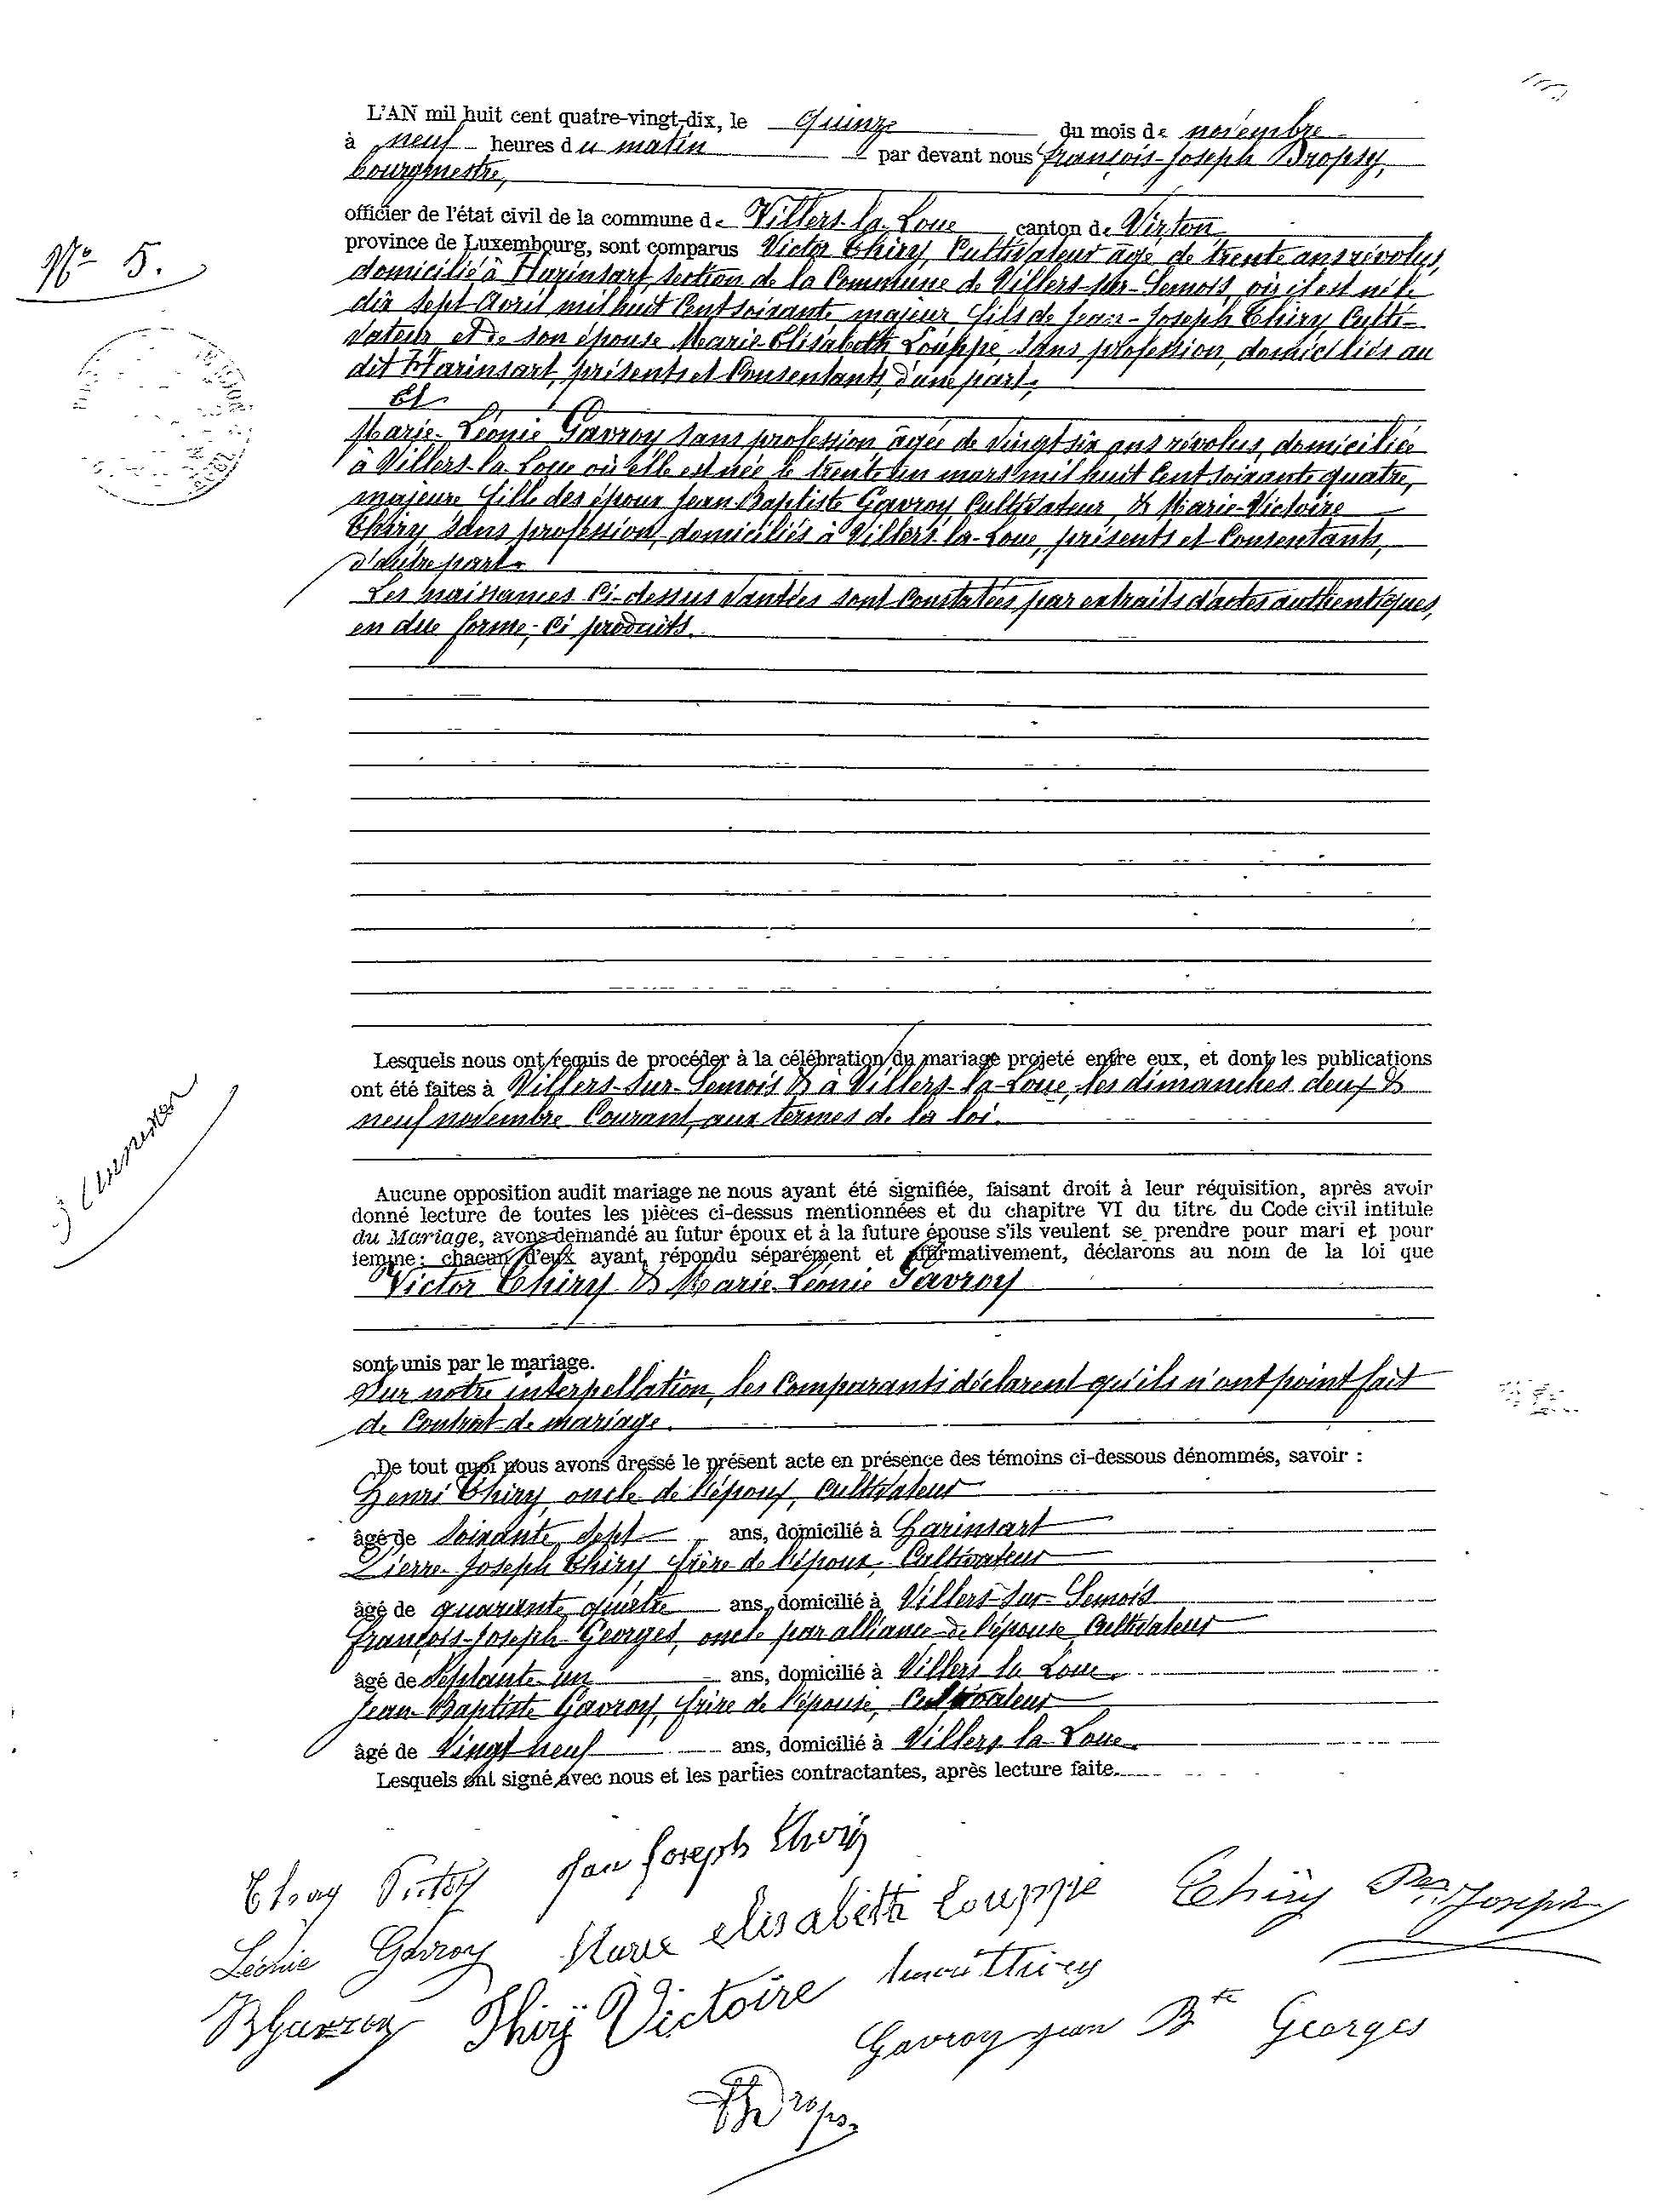 L'AN mil huit cent quatre-vingt-dix, le quinze du mois de novembre
à neuf heures du matin par devant nous François-Joseph Dropsy,
bourgmestre,
officier de l'état civil de la commune de Villers-la-Loue canton de Virton
province de Luxembourg, sont comparus Victor Thiry, Cultivateur âgé de trente ans révolus,
domicilié à Harinsart, section de la Commune de Villers-sur-Semois, où il est né le
dix sept Avril mil huit Cent soixante, majeur, fils de Jean-Joseph Thiry, Culti-
vateur et de son épouse Marie-Elisabeth Louppe, sans profession, domiciliés au
dit Harinsart, présents et Consentants, d'une part,
Et
Marie-Léonie Gavroy sans profession, âgée de vingt six ans révolus, domiciliée
à Villers-la-Loue où elle est née le trente un mars mil huit Cent soixante quatre,
majeure fille des époux Jean Baptiste Gavroy Cultivateur & Marie-Victoire
Thiry sans profession, domiciliés à Villers-la-Loue, présents et Consentants,
d'autre part.
Les naissances Ci-dessus vantées sont Constatées par extraits d'actes authentiques,
en due forme, Ci produits.
N° 5.
Lesquels nous ont requis de procéder à la célébration du mariage projeté entre eux, et dont les publications
ont été faites à Villers-sur-Semois & à Villers-la-Loue, les dimanches deux &
neuf novembre Courant, aux termes de la loi.
Aucune opposition audit mariage ne nous ayant été signifiée, faisant droit à leur réquisition, après avoir
donné lecture de toutes les pièces ci-dessus mentionnées et du chapitre VI du titre du Code civil intitule
du Mariage, avons demandé au futur époux et à la future épouse s'ils veulent se prendre pour mari et pour
femme: chacun d'eux ayant répondu séparément et affirmativement, déclarons au nom de la loi que
Victor Thiry & Marie-Léonie Gavroy
sont unis par le mariage.
Sur notre interpellation, les Comparants déclarent qu'ils n'ont point fait
de Contrat de mariage.
De tout quoi nous avons dressé le présent acte en présence des témoins ci-dessous dénommés, savoir :
Henri Thiry, oncle de l'époux, Cultivateur
âgé de soixante sept ans, domicilié à Harinsart
Pierre-Joseph Thiry, frère de l'époux, Cultivateur
âgé de quarante quatre ans, domicilié à Villers-sur-Semois
François-Joseph Georges, oncle par alliance de l'épouse, Cultivateur
âgé de septante un ans, domicilié à Villers la Loue.
Jean-Baptiste Gavroy, frère de l'épouse, Cultivateur
âgé de Vingt neuf ans, domicilié à Villers la Loue.
Lesquels ont signé avec nous et les parties contractantes, après lecture faite.
Thiry Victor Jean Joseph Thiry
Léonie Gavroy Marie elisabeth Louppe Thiry Joseph
BGavroy Thirÿ Victoire Thiry
Gavroy jean Bte Georges